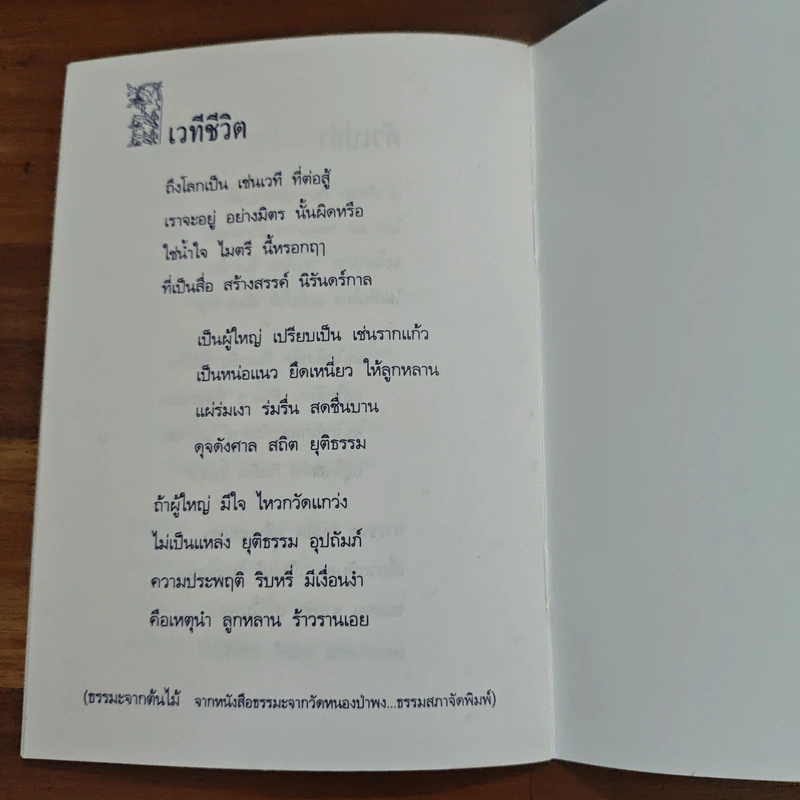 เวทีชีวิต
ถึงโลกเป็น เช่นเวที ที่ต่อสู้
เราจะอยู่ อย่างมิตร นั้นผิดหรือ
ใช่น้ำใจ ไมตรี นี้หรอกฤๅ
ที่เป็นสื่อ สร้างสรรค์ นิรันดร์กาล
เป็นผู้ใหญ่ เปรียบเป็น เช่นรากแก้ว
เป็นหน่อแนว ยึดเหนี่ยว ให้ลูกหลาน
แผ่ร่มเงา ร่มรื่น สดชื่นบาน
ดุจดังศาล สถิต ยุติธรรม
ถ้าผู้ใหญ่ มีใจ ไหวกวัดแกว่ง
ไม่เป็นแหล่ง ยุติธรรม อุปถัมภ์
ความประพฤติ ริบหรี่ มีเงื่อนงำ
คือเหตุนำ ลูกหลาน ร้าวรานเอย
(ธรรมะจากต้นไม้ จากหนังสือธรรมะจากวัดหนองป่าพง...ธรรมสภาจัดพิมพ์)